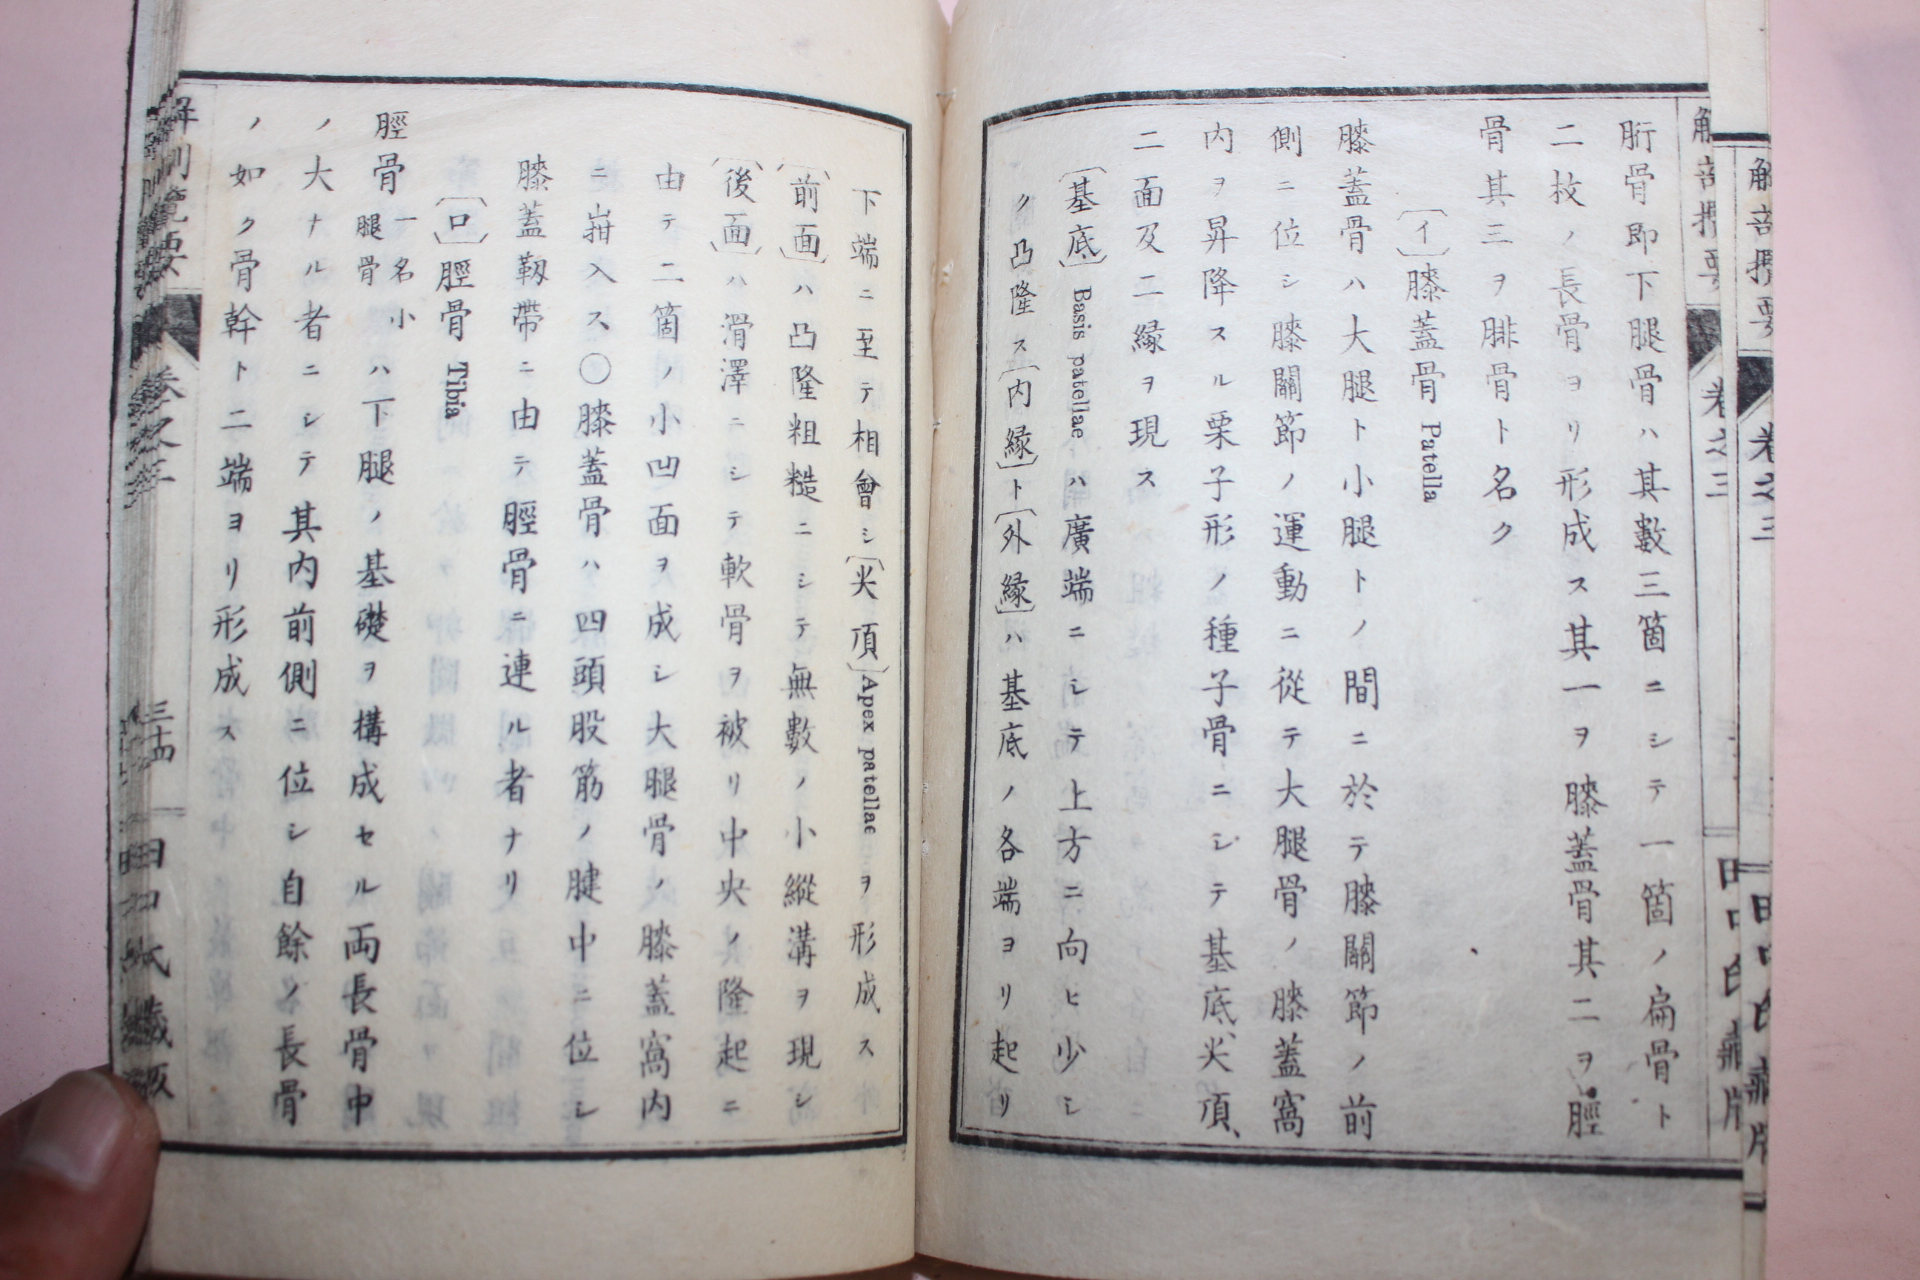 胻骨即下腿骨ハ其數三箇ニシテ一箇ノ扁骨ト
二枚ノ長骨ヨリ形成ス其一ヲ膝蓋骨其二ヲ脛
骨其三ヲ腓骨ト名ク
〔イ〕膝蓋骨 Patella
膝蓋骨ハ大腿ト小腿トノ間ニ於テ膝關節ノ前
側ニ位シ膝關節ノ運動ニ從テ大腿骨ノ膝蓋窩
内ヲ昇降スル栗子形ノ種子骨ニシテ基底、尖頂、
二面及二縁ヲ現ス
〔基底〕Basis patellae ハ廣端ニシテ上方ニ向ヒ少シ
ク凸隆ス〔内縁〕ト〔外縁〕ハ基底ノ各端ヨリ起リ
下端ニ至テ相會シ〔尖頂〕Apex patellae ヲ形成ス
〔前面〕ハ凸隆粗糙ニシテ無數ノ小縱溝ヲ現シ
〔後面〕ハ滑澤ニシテ軟骨ヲ被リ中央ノ隆起ニ
由テ二箇ノ小凹面ヲ成シ大腿骨ノ膝蓋窩内
ニ嵌入ス〇膝蓋骨ハ四頭股筋ノ腱中ニ位シ
膝蓋靱帶ニ由テ脛骨ニ連ル者ナリ
〔口〕脛骨 Tibia
脛骨一名小腿骨ハ下腿ノ基礎ヲ構成セル両長骨中
ノ大ナル者ニシテ其内前側ニ位シ自餘ノ長骨
ノ如ク骨幹ト二端ヨリ形成ス
解剖攬要
卷之三
三十四
田口氏藏版